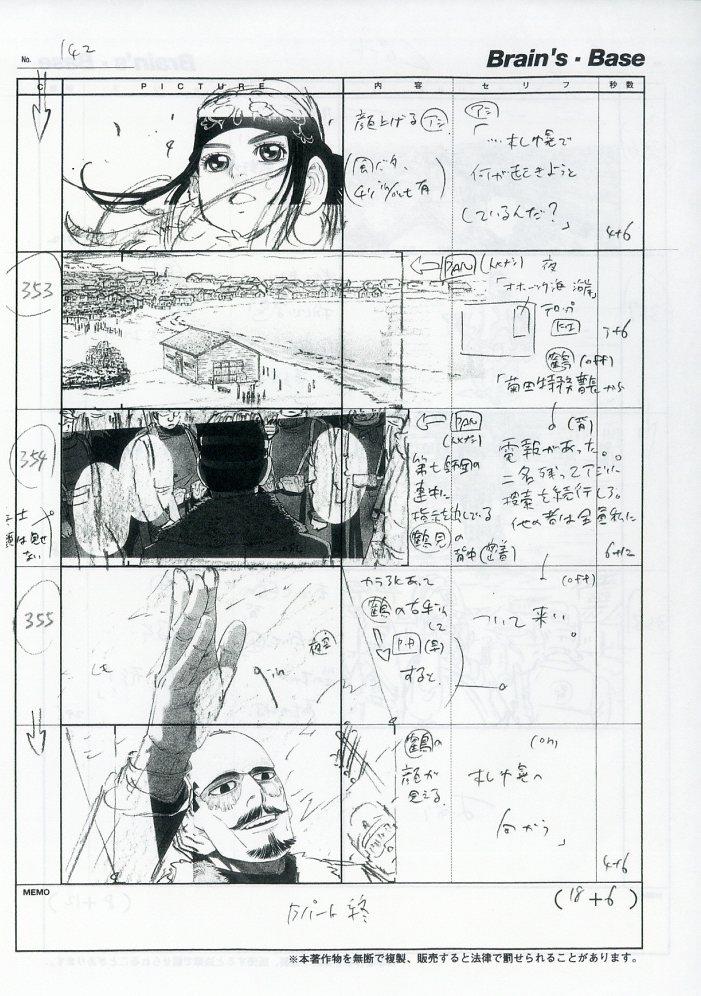 No. 142
Brain's・Base
C PICTURE 内容 セリフ 秒数
顔上げる アシ
アシ
「…札幌で
何が起きようと
しているんだ?」
4+6
353
PAN
夜
「オホーツク海沿岸」
テロップ
7+6
鶴 (off)
「菊田特務曹長から
354
PAN
(背)
第七師団の
連中に
指示を出している
鶴見の
背中(密着)
電報があった。
二名残ってアイヌに
捜索を続行しろ。
他の者は全員私に
6+12
355
カラ絵あって
鶴の右手
P.P
すると、
夜空
(off)
ついて来い。
鶴の
顔が
見える。
(on)
札幌へ
向かう」
4+6
MEMO
Aパート終
(18+6)
※本著作物を無断で複製、販売すると法律で罰せられることがあります。